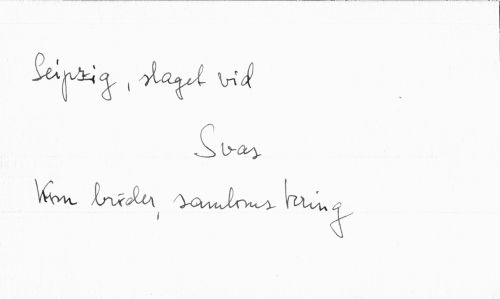 Leipzig, slaget vid
Svas
Kom bröder, samloms kring